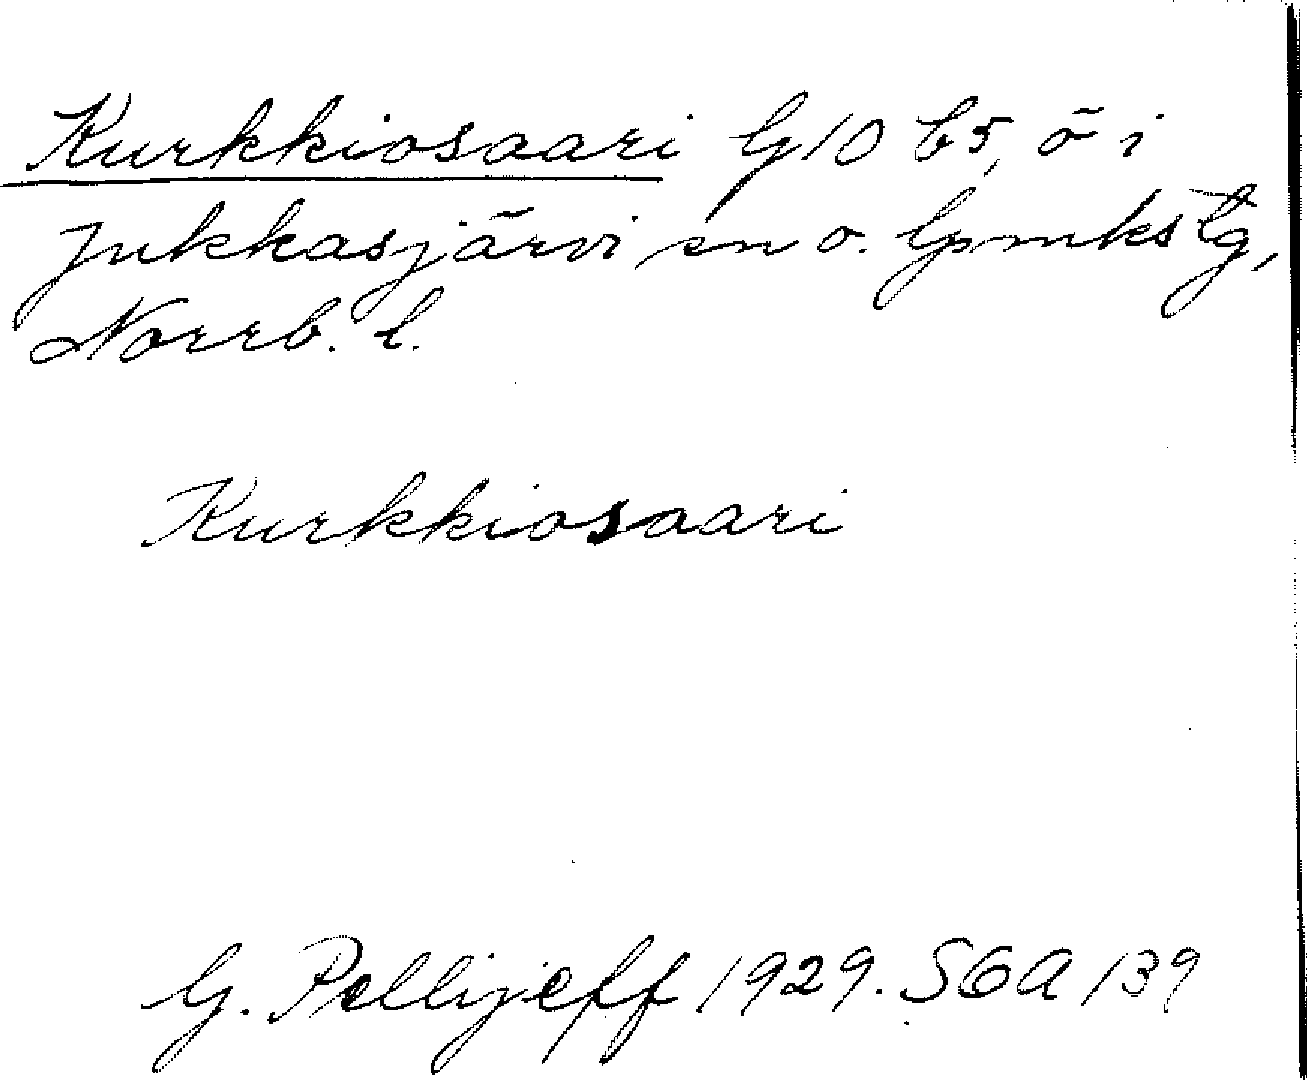 Kurkkiosaari G10 b5, ö i
Jukkasjärvi sn o. Gmkstg,
Norrb. l.
Kurkkiosaari
G. Pellijeff 1929. SGA 139